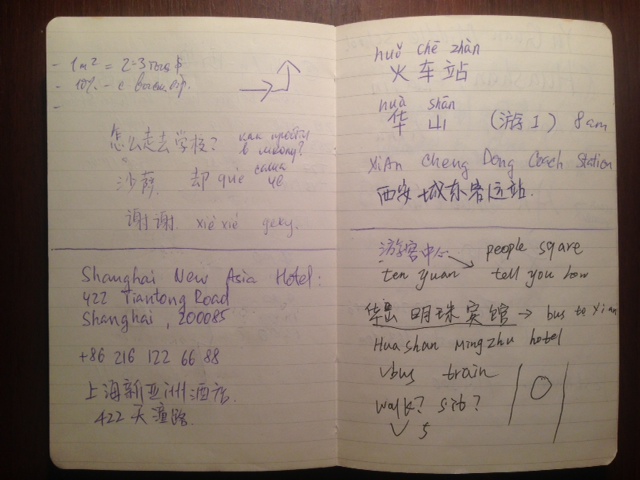 - 1m² = 2-3 тыс ф
- 10% - с
-
怎么走去学校? как пройти
в школу?
沙莎 却 què саша
че
谢谢 xiè xiè
Shanghai New Asia Hotel.
422 Tiantong Road
Shanghai, 200085
+86 216 122 66 88
上海新亚洲酒店
422 天潼路
huǒ chē zhàn
火车站
huà shān
华 山 (游1) 8am
XiAn Cheng Dong Coach Station
西安城东客运站
游客中心 people sqare
ten yuan tell you how
华岳明珠宾馆 → bus to Xian
Huashan Mingzhu hotel
bus train
walk? sit?
5